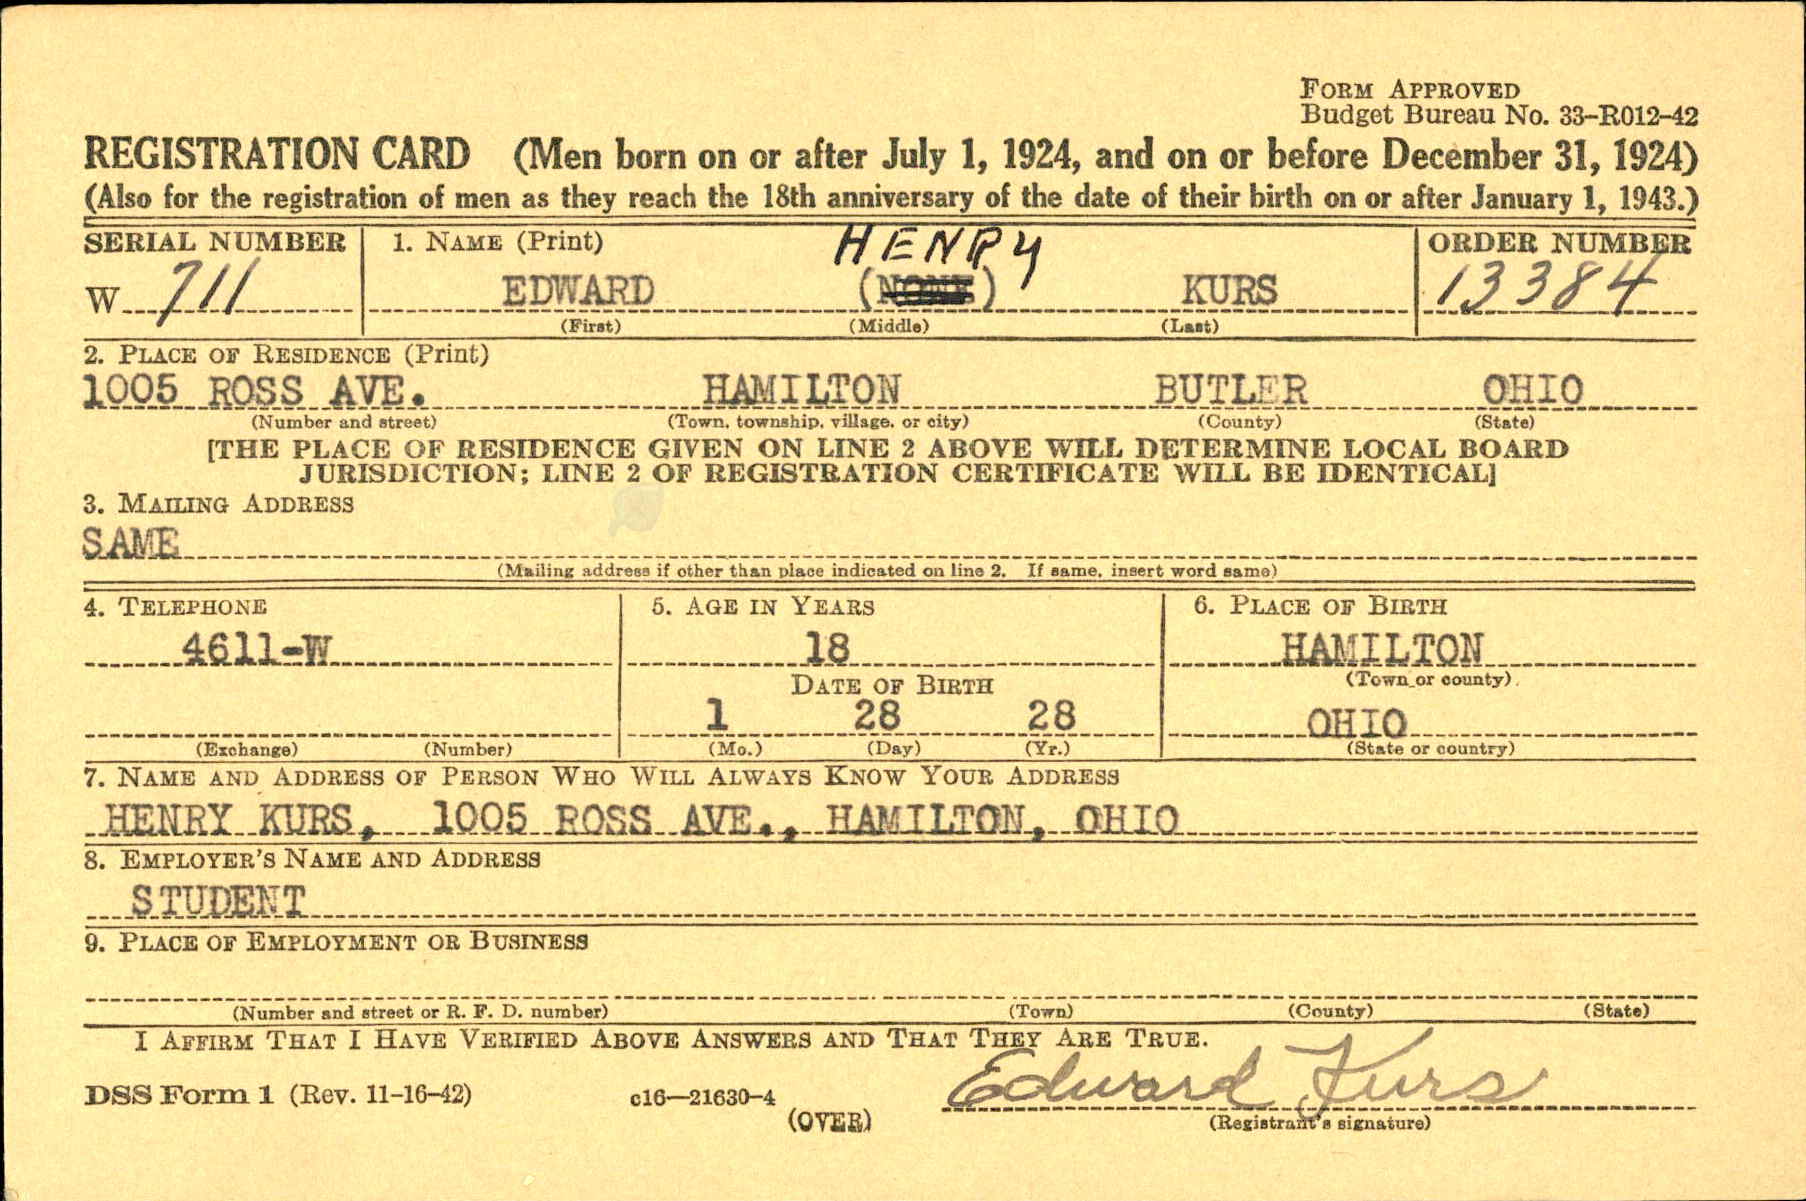 FORM APPROVED
Budget Bureau No. 33-R012-42
REGISTRATION CARD (Men born on or after July 1, 1924, and on or before December 31, 1924)
(Also for the registration of men as they reach the 18th anniversary of the date of their birth on or after January 1, 1943.)
SERIAL NUMBER 1. NAME (Print) HENRY ORDER NUMBER
W 711 EDWARD (NONE) KURS 13384
(First) (Middle) (Last)
2. PLACE OF RESIDENCE (Print)
1005 ROSS AVE. HAMILTON BUTLER OHIO
(Number and street) (Town, township, village, or city) (County) (State)
[THE PLACE OF RESIDENCE GIVEN ON LINE 2 ABOVE WILL DETERMINE LOCAL BOARD
JURISDICTION; LINE 2 OF REGISTRATION CERTIFICATE WILL BE IDENTICAL]
3. MAILING ADDRESS
SAME
(Mailing address if other than place indicated on line 2. If same, insert word same)
4. TELEPHONE 5. AGE IN YEARS 6. PLACE OF BIRTH
4611-W 18 HAMILTON
DATE OF BIRTH (Town or county)
1 28 28 OHIO
(Exchange) (Number) (Mo.) (Day) (Yr.) (State or country)
7. NAME AND ADDRESS OF PERSON WHO WILL ALWAYS KNOW YOUR ADDRESS
HENRY KURS, 1005 ROSS AVE., HAMILTON, OHIO
8. EMPLOYER'S NAME AND ADDRESS
STUDENT
9. PLACE OF EMPLOYMENT OR BUSINESS
(Number and street or R. F. D. number) (Town) (County) (State)
I AFFIRM THAT I HAVE VERIFIED ABOVE ANSWERS AND THAT THEY ARE TRUE.
DSS Form 1 (Rev. 11-16-42) c16—21630-4 Edward Kurs
(OVER) (Registrant's signature)